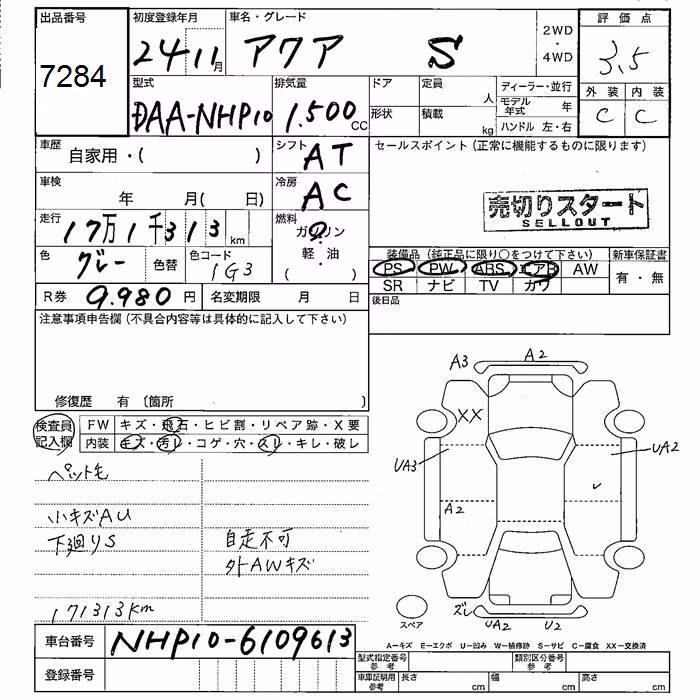 出品番号 初度登録年月 車名・グレード 2WD・4WD 評価点
7284 24 11月 アクア S 3.5
型式 排気量 ドア 定員 人 ディーラー・並行 外装 内装
DAA-NHP10 1.500CC 形状 積載 kg モデル年式 年 C C
ハンドル 左・右
車歴 自家用・( ) シフト AT セールスポイント(正常に機能するものに限ります)
車検 年 月( 日) 冷房 AC
売切りスタート
SELLOUT
走行 17万1千313km 燃料 ガソリン
軽・油
( )
色 グレー 色替 色コード 1G3 装備品(純正品に限り○をつけて下さい) 新車保証書
PS PW ABS エアB AW 有・無
R券 9.980円 名変期限 月 日 SR ナビ TV カワ
後日品
注意事項申告欄(不具合内容等は具体的に記入して下さい)
修復歴 有 〔箇所 〕
検査員記入欄 FW キズ・飛石・ヒビ割・リペア跡・X要
内装 キズ・汚レ・コゲ・穴・スレ・キレ・破レ
ペット毛
小キズAU
下廻りS 自走不可
外AWキズ
171313km
A3 A2
XX
UA3 UA2
A2
ズレ UA2 U2
スペア
車台番号 NHP10-6109613
A-キズ E-エクボ U-凹み W-補修跡 S-サビ C-腐食 XX-交換済
登録番号 型式指定番号 参考 類別区分番号 参考
車庫証明用 参考 長さ cm 幅 cm 高さ cm